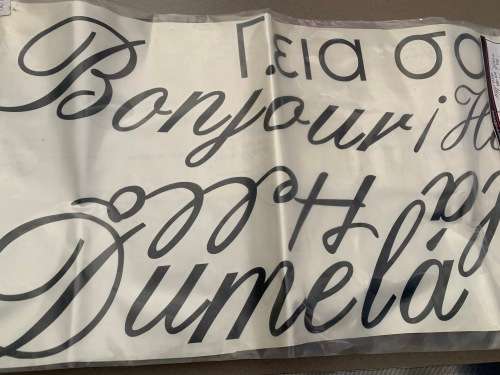 Γεια σα
Bonjour ¡Ho
Hello
Dumelá